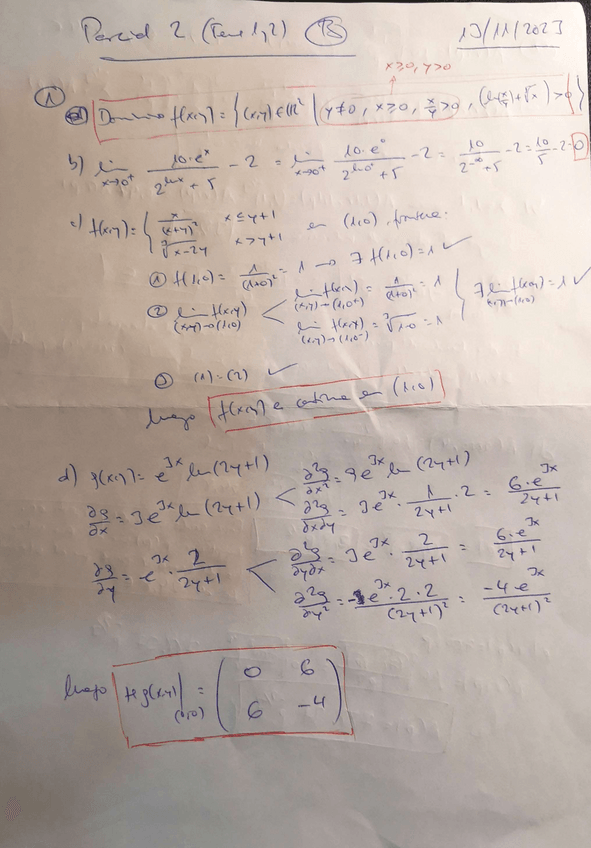 Parcial 2 (Tema 1,2) (B) 13/11/2023
x≥0, y>0
① a) Dominio f(x,y) = {(x,y)∈ℝ² | y≠0, x≥0, x/y>0, (ln(x/y)+√x)>0}
b) lim x→0⁺ 10·eˣ/(2^(ln x)+5) - 2 = lim x→0⁺ 10·e⁰/(2^(ln 0⁺)+5) - 2 = 10/(2^(-∞)+5) - 2 = 10/5 - 2 = 0
c) f(x,y) = { x/(x+y)² x≤y+1 en (1,0)
∛(x-2y) x>y+1
① f(1,0) = 1/(1+0)² = 1 → ∃ f(1,0)=1 ✓
② lim (x,y)→(1,0) f(x,y) < lim (x,y)→(1,0⁺) f(x,y) = 1/(1+0)² = 1 } ∃ lim (x,y)→(1,0) f(x,y) = 1 ✓
lim (x,y)→(1,0⁻) f(x,y) = ∛(1-0) = 1
③ (1)=(2) ✓
luego f(x,y) es continua en (1,0)
d) g(x,y) = e^(3x) ln(2y+1) ∂²g/∂x² = 9e^(3x) ln(2y+1)
∂g/∂x = 3e^(3x) ln(2y+1) < ∂²g/∂x∂y = 3e^(3x) · 1/(2y+1) · 2 = 6·e^(3x)/(2y+1)
∂g/∂y = e^(3x) · 2/(2y+1) < ∂²g/∂y∂x = 3e^(3x) · 2/(2y+1) = 6·e^(3x)/(2y+1)
∂²g/∂y² = -e^(3x)·2·2/(2y+1)² = -4·e^(3x)/(2y+1)²
luego Hg(x,y)|(0,0) = ( 0 6
6 -4 )